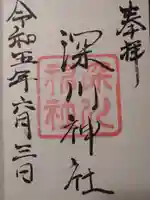 奉拝
深川神社
令和五年六月三日